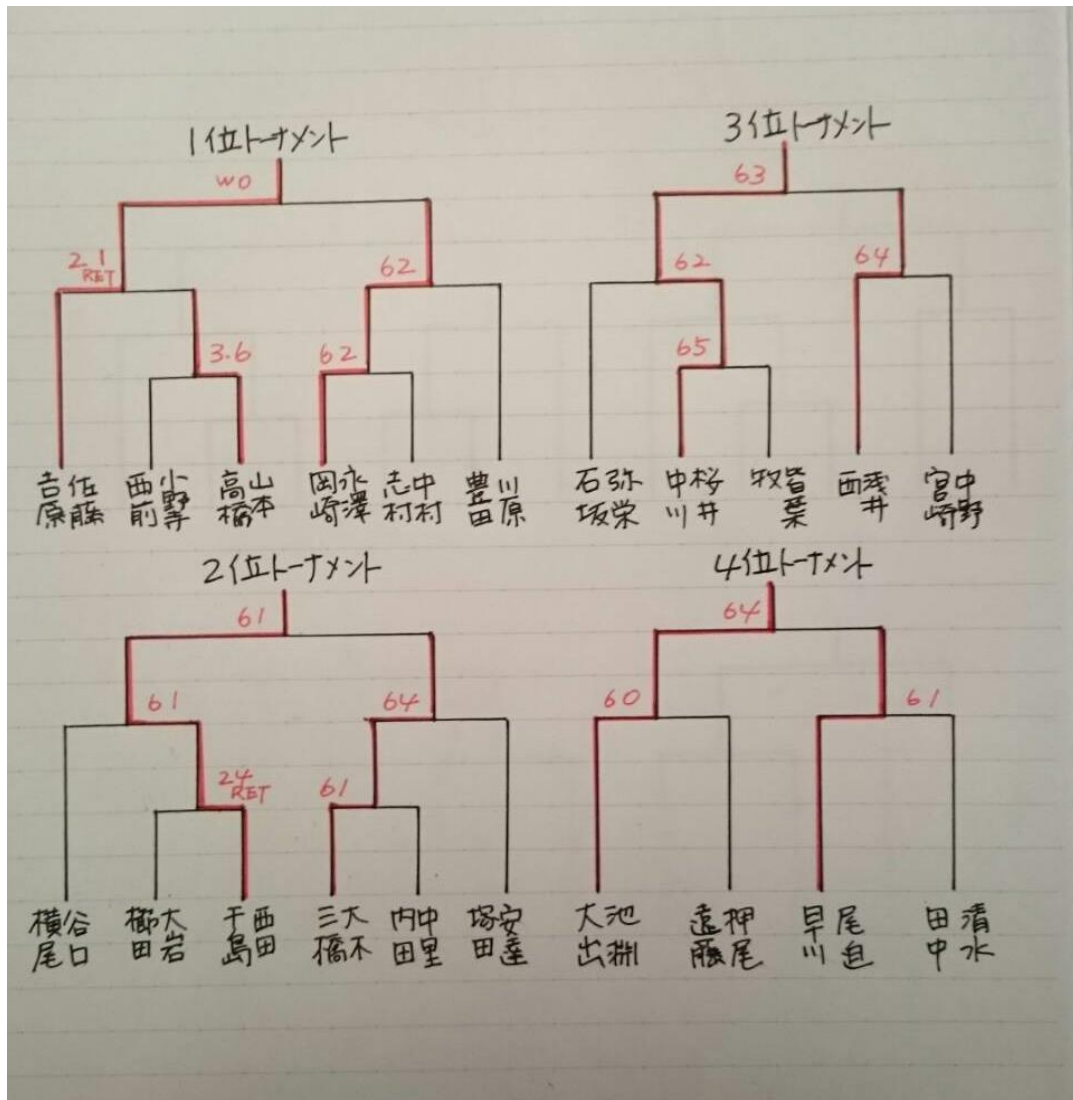 1位トーナメント
WO
21
RET
62
3.6
62
吉原 佐藤
西前 小野寺
高橋 山本
岡崎 永澤
志村 中村
豊田 川原
3位トーナメント
63
62
64
65
石坂 弥栄
中川 桜井
牧 皆葉
西 浅井
宮崎 中野
2位トーナメント
61
61
64
24
RET
61
横尾 谷口
櫛田 大岩
干島 西田
三橋 大木
内田 中里
塚田 安達
4位トーナメント
64
60
61
大出 池渕
遠藤 押尾
早川 尾迫
田中 清水